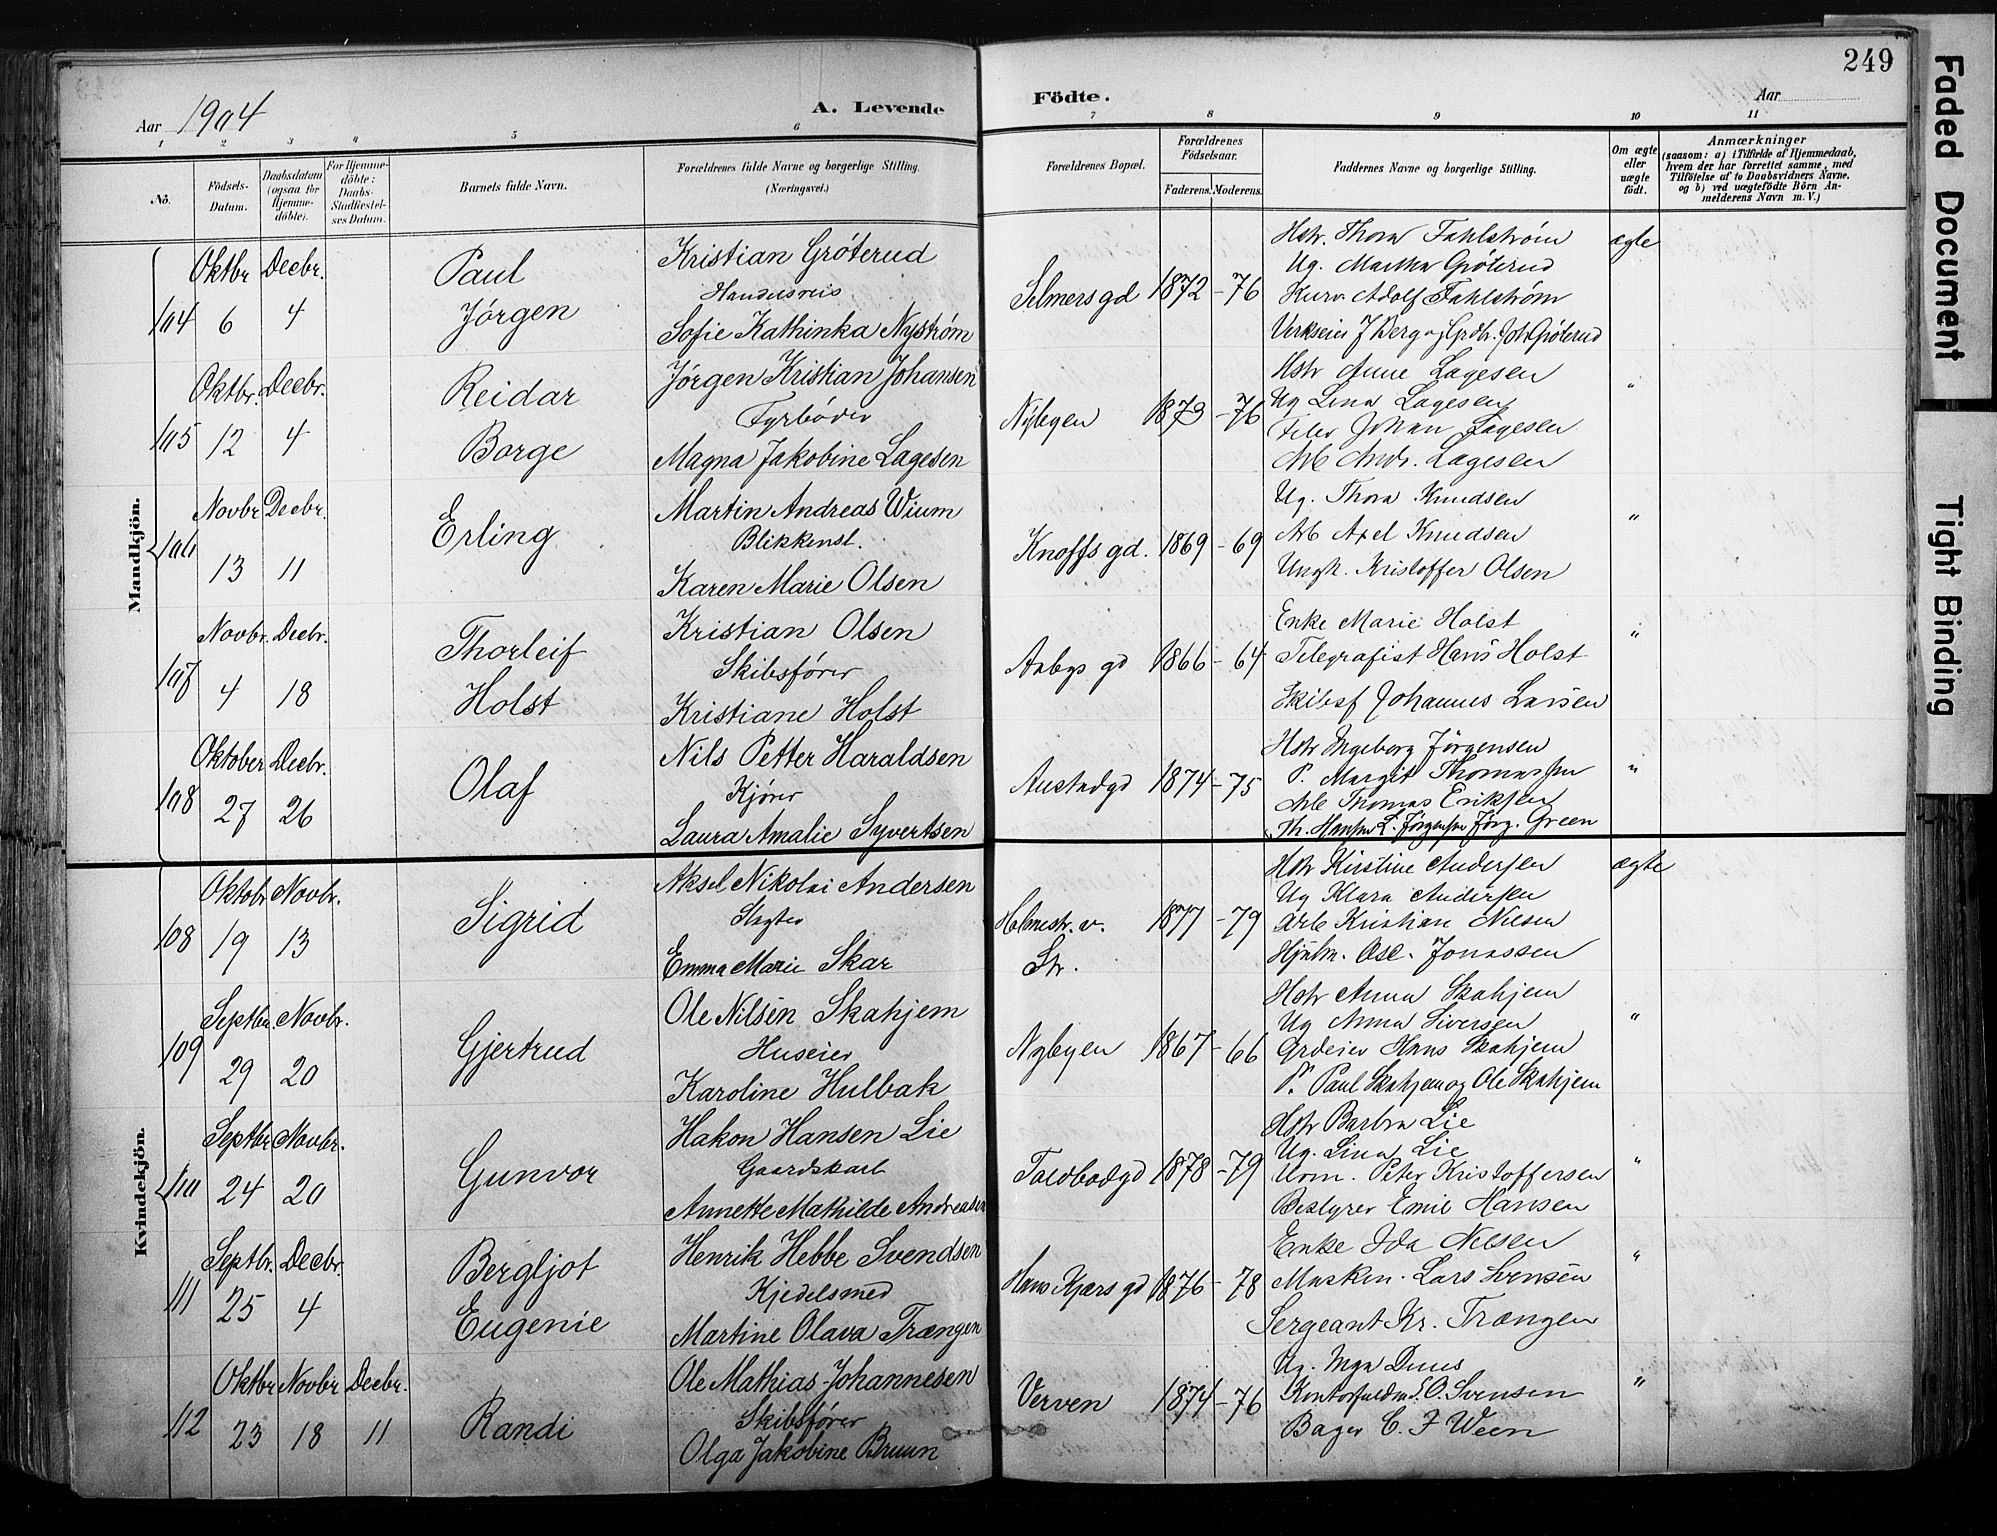 249
Aar 1904
A. Levende
Födte.
Aar
1 2 3 4 5 6 7 8 9 10 11
No.
Födsels-Datum.
Daabsdatum (ogsaa for Hjemme-döbte).
For Hjemme-döbte: Daabs-Stadfæstel-ses Datum.
Barnets fulde Navn.
Forældrenes fulde Navne og borgerlige Stilling. (Næringsvei.)
Forældrenes Bopæl.
Forældrenes Födselsaar.
Faderens. Moderens.
Faddernes Navne og borgerlige Stilling.
Om ægte eller uægte födt.
Anmærkninger
(saasom: a) i Tilfælde af Hjemmedaab, hvem der har forrettet samme, med Tilföielse af to Daabsvidners Navne. og b) ved uægtefödte Börn Anmelderens Navn m. V.)
Mandkjön.
104
Oktbr 6
Decbr. 4
Paul Jørgen
Kristian Grøterud
Handelsreis.
Sofie Kathinka Nystrøm
Selmers gd
1872 - 76
Hstr. Thora Fahlstrøm
Ug. Martha Grøterud
Kurv. Adolf Fahlstrøm
Verkseier J Berg og Grdbr. Joh Grøterud
ægte
105
Oktbr. 12
Decbr. 4
Reidar Borge
Jørgen Kristian Johansen
Fyrbøder
Magna Jakobine Lagesen
Nybyen
1873 - 76
Hstr Anne Lagesen
Ug Lina Lagesen
Johan Lagesen
Arb Andr. Lagesen
"
106
Novbr 13
Decbr. 11
Erling
Martin Andreas Wium
Blikkensl.
Karen Marie Olsen
Knoffs gd.
1869 - 69
Ug. Thora Knudsen
Arb Axel Knudsen
Ungk. Kristoffer Olsen
"
107
Novbr. 4
Decbr. 18
Thorleif Holst
Kristian Olsen
Skibsfører
Kristiane Holst
Aabys gd
1866 - 64
Enke Marie Holst
Telegrafist Hans Holst
Skibsf Johannes Larsen
"
108
Oktober 27
Decbr. 26
Olaf
Nils Petter Haraldsen
Kjører
Laura Amalie Syvertsen
Austadgd
1874 - 75
Hstr Ingeborg Jørgensen
P. Margit Thomassen
Arb Thomas Eriksen
Th. Hansen L. Jørgensen Jørg. Green
"
Kvindekjön.
108
Oktobr 19
Novbr. 13
Sigrid
Aksel Nikolai Andersen
Slagter
Emma Marie Skar
Holmestr. v. Str.
1877 - 79
Hstr Kirstine Andersen
Ug Klara Andersen
Arb Kristian Nilsen
Hjulm. Osc. Jonassen
ægte
109
Septbr. 29
Novbr. 20
Gjertrud
Ole Nilsen Skahjem
Huseier
Karoline Hulbak
Nybyen
1867 - 66
Hstr Anna Skahjem
Ug Anna Siversen
Grdeier Hans Skahjem
P. Paul Skahjem og Ole Skahjem
"
110
Septbr 24
Novbr. 20
Gunvor
Hakon Hansen Lie
Gaardskarl
Annette Mathilde Andreasen
Toldbodgd
1878 - 79
Hstr Barbra Lie
Ug. Lina Lie
Urm. Peter Kristoffersen
Bestyrer Emil Hansen
"
111
Septbr. 25
Decbr. 4
Bergljot Eugenie
Henrik Hebbe Svendsen
Kjedelsmed
Martine Olava Trængen
Hans Kjærs gd
1876 - 78
Enke Ida Nilsen
Maskin. Lars Svensen
Sergeant Kr. Trængen
"
112
Oktbr 23
Novbr 18
Decbr. 11
Randi
Ole Mathias Johannesen
Skibsfører
Olga Jakobine Bruun
Verven
1874 - 76
Ug. Inga Duus
Kontorfuldm S. O. Svensen
Bager C. F Ween
"
Faded Document
Tight Binding